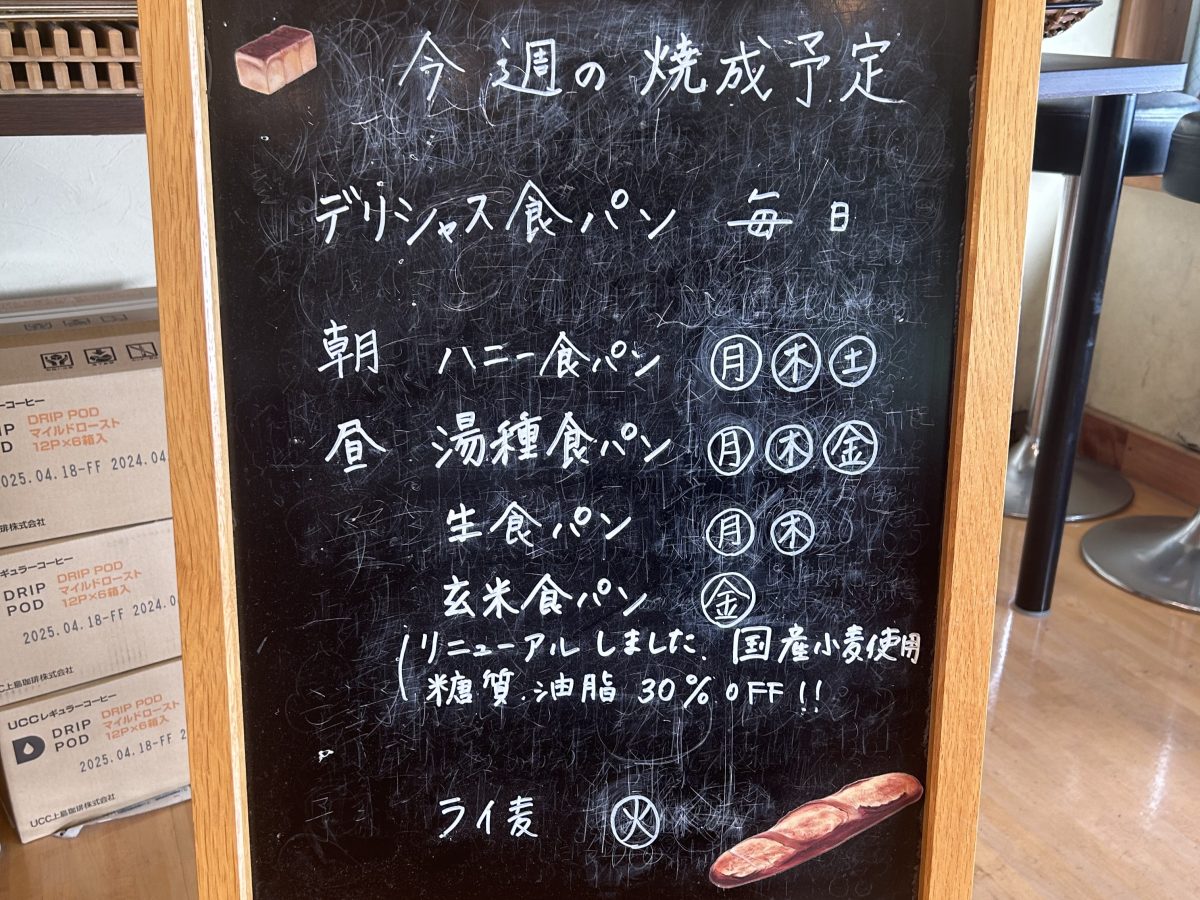 今週の焼成予定
デリシャス食パン 毎日
朝 ハニー食パン ㊊㊍㊏
昼 湯種食パン ㊊㊍㊎
生食パン ㊊㊍
玄米食パン ㊎
(リニューアルしました、国産小麦使用
糖質・油脂 30% OFF!!
ライ麦 ㊋
ーコーヒー
IP DRIP POD
OD マイルドロースト
12P×6箱入
2025.04.18-FF 2024.04
琲株式会社
ギュラーコーヒー
DRIP DRIP POD
POD マイルドロースト
12P×6箱入
2025.04.18-FF 2024.0
CC上島珈琲株式会社
UCCレギュラーコーヒー
DRIP DRIP POD
POD マイルドロースト
12P×6箱入
2025.04.18-FF 2
UCC上島珈琲株式会社